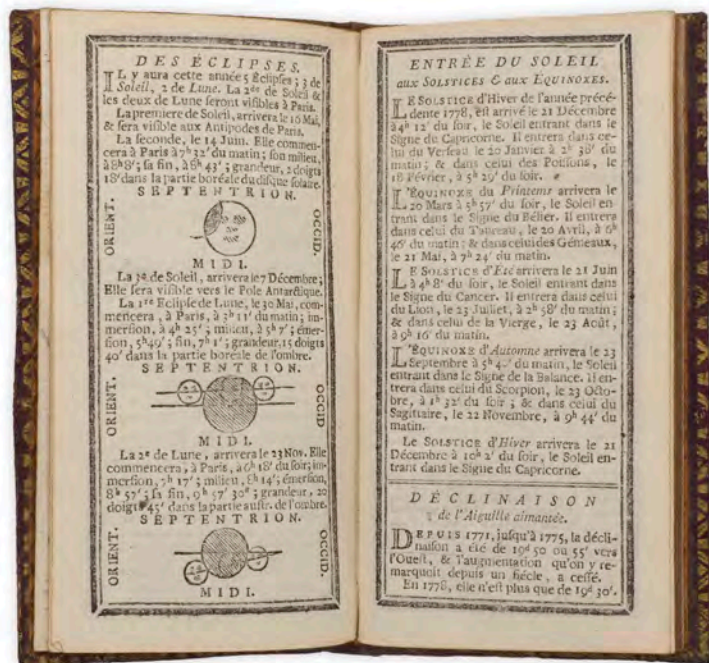 DES ÉCLIPSES.
IL y aura cette année 5 Éclipses ; 3 de
Soleil, 2 de Lune. La 2de de Soleil &
les deux de Lune seront visibles à Paris.
La premiere de Soleil, arrivera le 16 Mai,
& sera visible aux Antipodes de Paris.
La seconde, le 14 Juin. Elle commen-
cera à Paris à 7h 32' du matin ; son milieu,
à 8h 8' ; sa fin, à 8h 43' ; grandeur, 2 doigts
18' dans la partie boréale du disque solaire.
SEPTENTRION.
ORIENT.
OCCID.
MIDI.
La 3e de Soleil, arrivera le 7 Décembre ;
Elle sera visible vers le Pole Antarctique.
La 1re Eclipse de Lune, le 30 Mai, com-
mencera, à Paris, à 3h 11' du matin ; im-
mersion, à 4h 25' ; milieu, à 5h 7' ; émer-
sion, 5h 49' ; fin, 7h 1' ; grandeur, 15 doigts
40' dans la partie boréale de l'ombre.
SEPTENTRION.
ORIENT.
OCCID
MIDI.
La 2e de Lune, arrivera le 23 Nov. Elle
commencera, à Paris, à 6h 18' du soir; im-
mersion, 7h 17' ; milieu, 8h 14' ; émersion,
8h 57' ; sa fin, 9h 57' 30" ; grandeur, 20
doigts 45' dans la partie austr. de l'ombre.
SEPTENTRION.
ORIENT.
OCCID.
MIDI.
ENTRÉE DU SOLEIL
aux SOLSTICES & aux ÉQUINOXES.
LE SOLSTICE d'Hiver de l'année précé-
dente 1778, est arrivé le 21 Décembre
à 4h 12' du soir, le Soleil entrant dans le
Signe du Capricorne. Il entrera dans ce-
lui du Verseau le 20 Janvier à 2h 38' du
matin ; & dans celui des Poissons, le
18 Février, à 5h 29' du soir.
L'ÉQUINOXE du Printems arrivera le
20 Mars à 5h 57' du soir, le Soleil en-
trant dans le Signe du Bélier. Il entrera
dans celui du Taureau, le 20 Avril, à 6h
46' du matin ; & dans celui des Gémeaux,
le 21 Mai, à 7h 24' du matin.
LE SOLSTICE d'Été arrivera le 21 Juin
à 4h 8' du soir, le Soleil entrant dans
le Signe du Cancer. Il entrera dans celui
du Lion, le 23 Juillet, à 2h 58' du matin ;
& dans celui de la Vierge, le 23 Août,
à 9h 16' du matin.
L'ÉQUINOXE d'Automne arrivera le 23
Septembre à du matin, le Soleil
entrant dans le Signe de la Balance. Il en-
trera dans celui du Scorpion, le 23 Octo-
bre, à 1h 32' du soir ; & dans celui du
Sagittaire, le 22 Novembre, à 9h 44' du
matin.
Le SOLSTICE d'Hiver arrivera le 21
Décembre à 10h 2' du soir, le Soleil en-
trant dans le Signe du Capricorne.
DÉCLINAISON
de l'Aiguille aimantée.
DEPUIS 1771, jusqu'à 1775, la décli-
naison a été de 19d 50 ou 55' vers
l'Ouest, & l'augmentation qu'on y re-
marquoit depuis un siécle, a cessé.
En 1778, elle n'est plus que de 19d 30'.